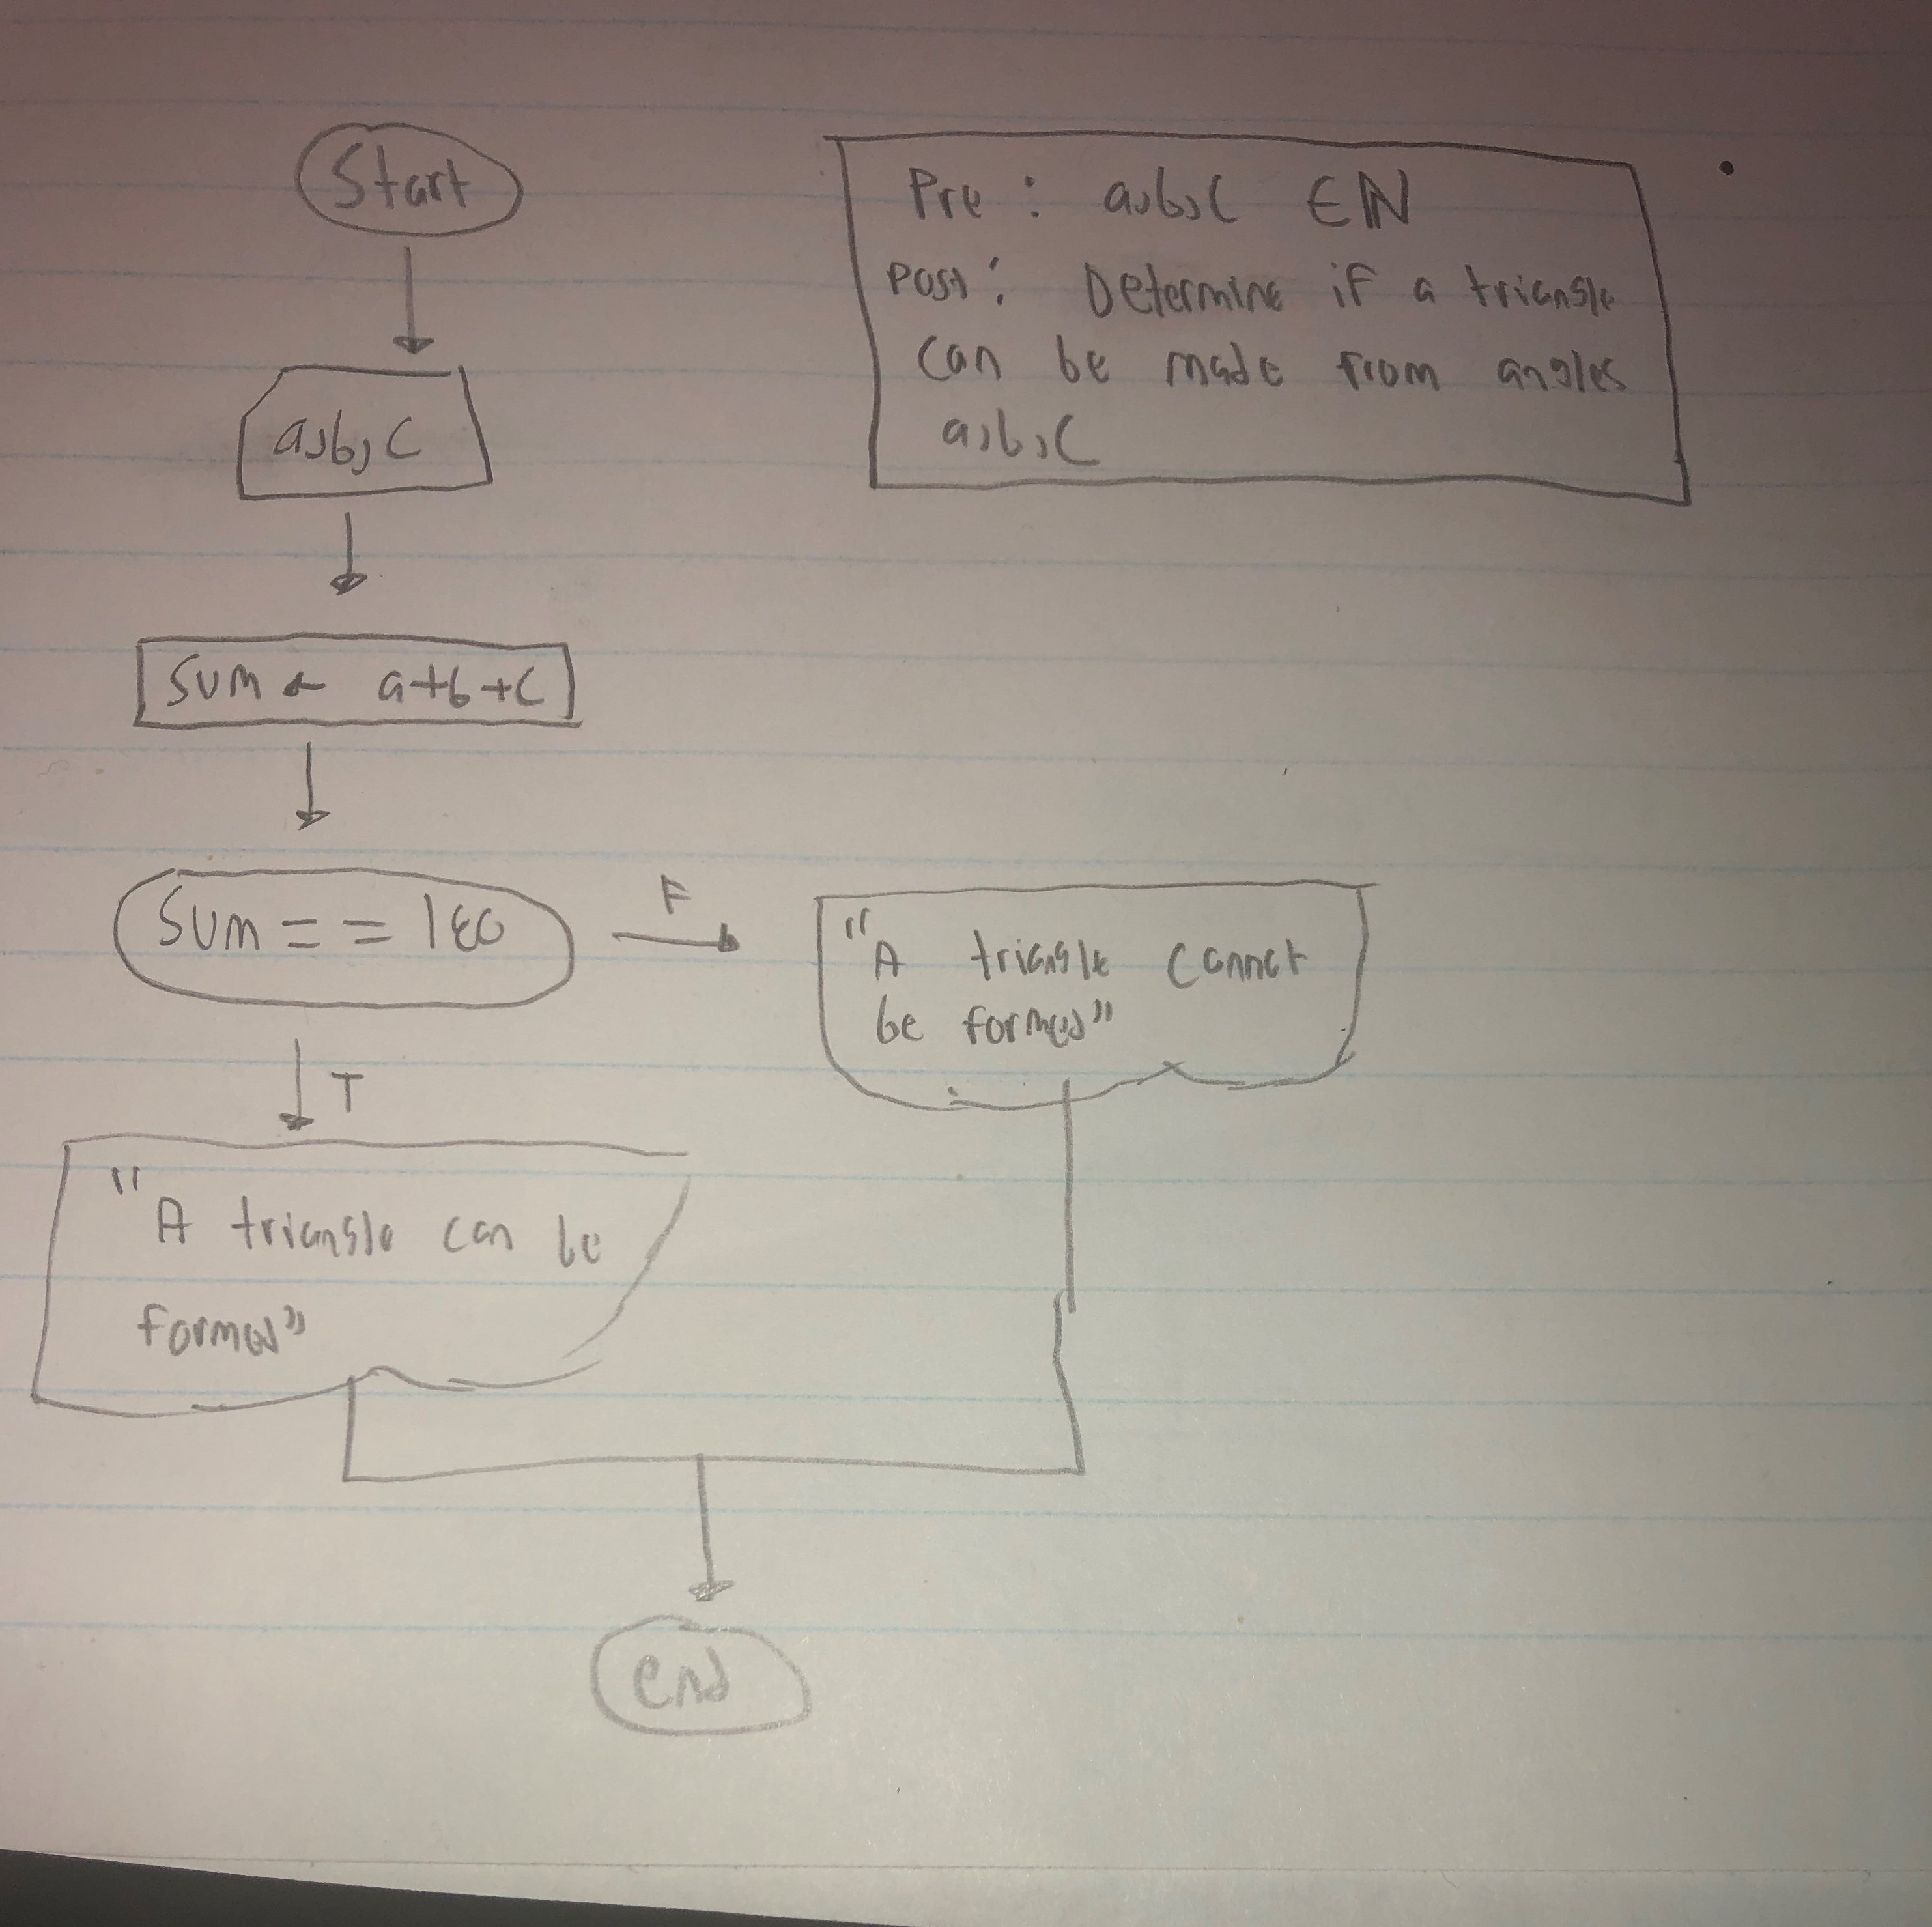 Start
Pre : a,b,c ∈ ℕ
Post: Determine if a triangle
can be made from angles
a,b,c
a,b,c
sum ← a+b+c
sum == 180
F
"A triangle cannot
be formed"
T
"A triangle can be
formed"
end